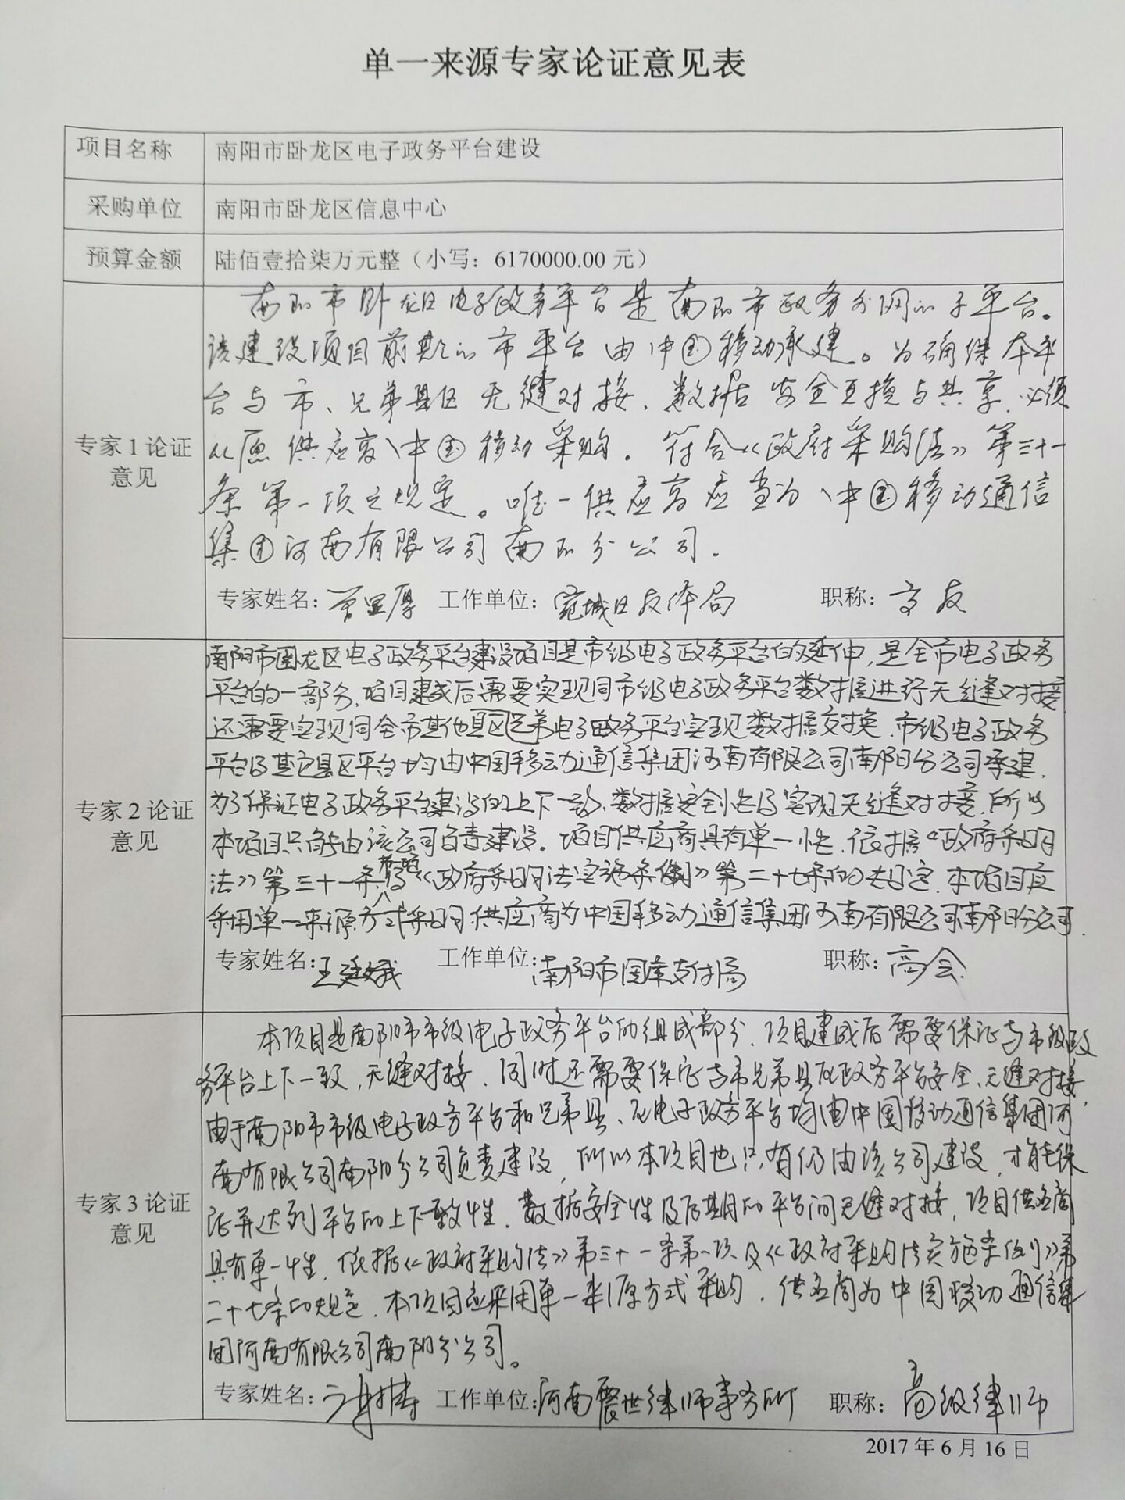 单一来源专家论证意见表
项目名称 南阳市卧龙区电子政务平台建设
采购单位 南阳市卧龙区信息中心
预算金额 陆佰壹拾柒万元整（小写：6170000.00 元）
专家 1 论证意见
南阳市卧龙区电子政务平台是南阳市政务外网的子平台。
该建设项目前期的市平台由中国移动承建。为确保本平
台与市、兄弟县区无缝对接、数据安全互换与共享，必须
从原供应商中国移动采购。符合《政府采购法》第三十一
条第一项之规定。唯一供应商应当为中国移动通信
集团河南有限公司南阳分公司。
专家姓名： 工作单位：宛城区文体局 职称：
专家 2 论证意见
南阳市卧龙区电子政务平台建设项目是市级电子政务平台的延伸，是全市电子政务
平台的一部分，项目建成后需要实现同市级电子政务平台数据进行无缝对接
还需要实现同全市其他县区兄弟电子政务平台实现数据交换，市级电子政务
平台及其它县区平台均由中国移动通信集团河南有限公司南阳分公司承建，
为了保证电子政务平台建设的上下一致，数据安全性及实现无缝对接，所以
本项目只能由该公司负责建设，项目供应商具有单一性，依据《政府采购
法》第三十一条第一项及《政府采购法实施条例》第二十七条的规定，本项目应
采用单一来源方式采购，供应商为中国移动通信集团河南有限公司南阳分公司。
专家姓名：王 工作单位：南阳市国库支付局 职称：高会
专家 3 论证意见
本项目是南阳市市级电子政务平台的组成部分，项目建成后需要保证与市级政
务平台上下一致，无缝对接，同时还需要保证与市兄弟县区政务平台安全、无缝对接，
由于南阳市市级电子政务平台和兄弟县、区电子政务平台均由中国移动通信集团河
南有限公司南阳分公司负责建设，所以本项目也只有仍由该公司建设，才能保
证并达到平台的上下一致性，数据安全性及后期的平台间无缝对接，项目供应商
具有单一性，依据《政府采购法》第三十一条第一项及《政府采购法实施条例》第
二十七条的规定，本项目应采用单一来源方式采购，供应商为中国移动通信集
团河南有限公司南阳分公司。
专家姓名： 工作单位：河南震世律师事务所 职称：高级律师
2017 年 6 月 16 日